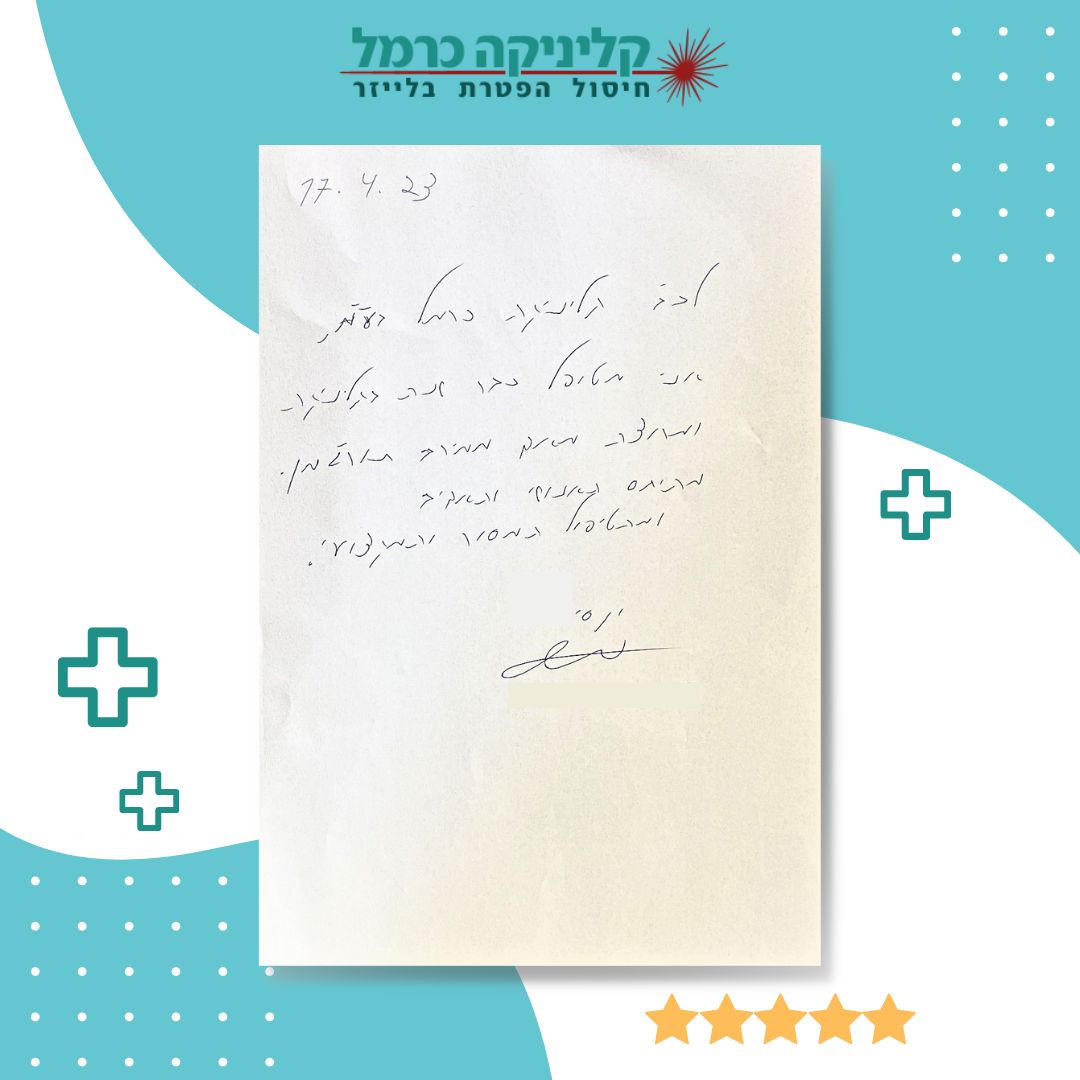 קליניקה כרמל
חיסול הפטרת בלייזר
17.4.23
לכב' קליניקה כרמל בע"מ,
אני מטופל כבר שנה בקליניקה
ומרוצה מאוד ממירב תורג'מן.
מהיחס האנושי והאדיב
ומהטיפול המסור והמקצועי.
יוסי